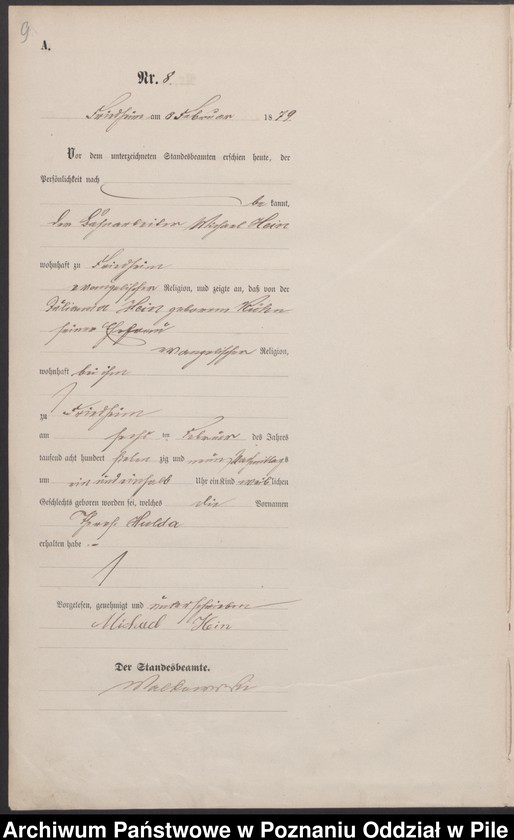 9
A.
Nr. 8.
Friedheim am 8 Februar 1879
Vor dem unterzeichneten Standesbeamten erschien heute, der
Persönlichkeit nach
be kannt,
der Michael Hein
wohnhaft zu Friedheim
evangelischer Religion, und zeigte an, daß von der
Julianna Hein geborene
seiner Ehefrau
evangelischer Religion,
wohnhaft bei ihm
zu Friedheim
am Februar des Jahres
tausend acht hundert sieben zig und neun Nachmittags
um ein und einhalb Uhr ein Kind weiblichen
Geschlechts geboren worden sei, welches die Vornamen
Hulda
erhalten habe
Vorgelesen, genehmigt und unterschrieben
Michael Hein
Der Standesbeamte.
Archiwum Państwowe w Poznaniu Oddział w Pile